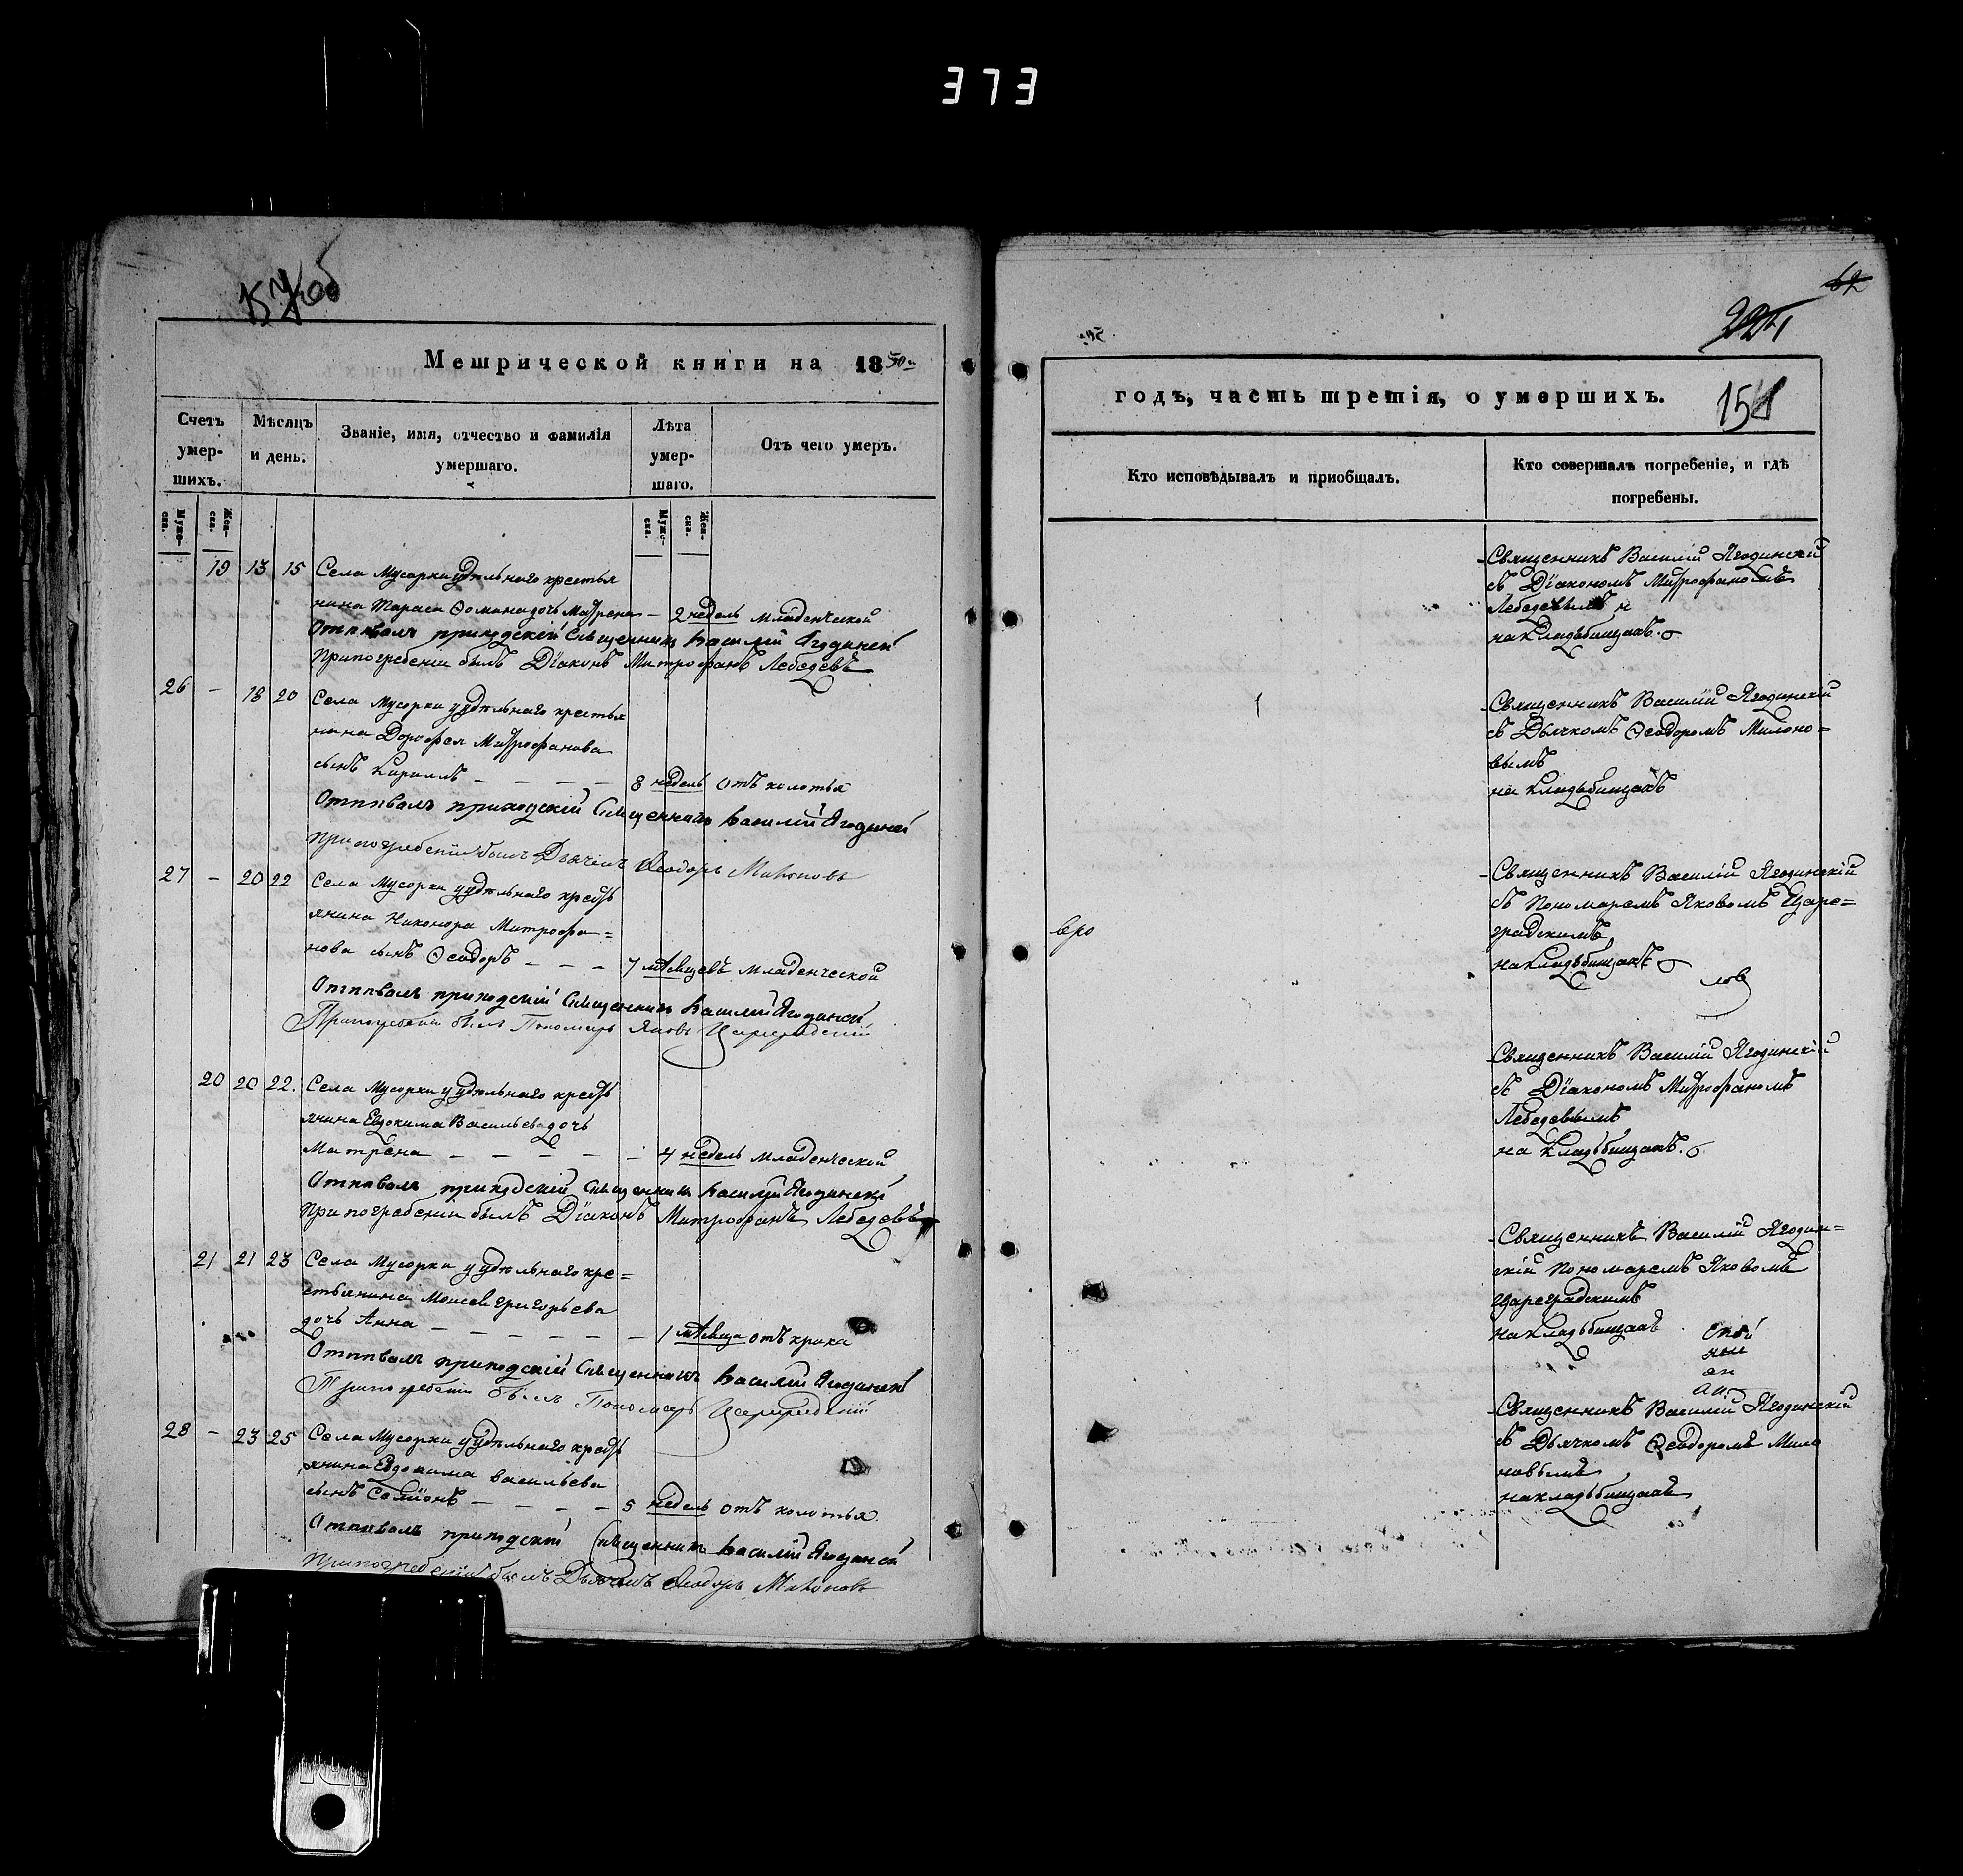 373
Метрической книги на 1850й
Счетъ умер-шихъ.
Мѣсяцъ и день.
Званіе, имя, отчество и фамилія умершаго.
Лѣта умер-шаго.
Отъ чего умеръ.
Муже-ска.
Жен-ска.
Муже-ска.
Жен-ска.
19 13 15 Села Мусорки удѣльнаго крестья
нина Тараса Фомина дочь Матрена – 2 недель младенческой
Отпѣвалъ приходскій Священникъ Василій Ягодинскій
При погребеніи былъ Діаконъ Митрофанъ Лебедевъ
26 – 18 20 Села Мусорки удѣльнаго крестья
нина Дорофея Митрофанова
сынъ Кириллъ – – – – 8 недель отъ колотья
Отпѣвалъ приходскій Священникъ Василій Ягодинскій
При погребеніи былъ Дьячекъ Ѳеодоръ Милоновъ
27 – 20 22 Села Мусорки удѣльнаго кресть
янина Никонора Митрофа=
нова сынъ Ѳеодоръ – – – 7 мѣсяцевъ младенческой
Отпѣвалъ приходскій Священникъ Василій Ягодинской
При погребеніи былъ Пономарь Яковъ Цареградскій
20 20 22. Села Мусорки удѣльнаго кресть
янина Евдокима Васильева дочь
Матрена – – – – – – 4 недель младенческой
Отпѣвалъ приходскій Священникъ Василій Ягодинскій
При погребеніи былъ Діаконъ Митрофанъ Лебедевъ
21 21 23 Села Мусорки удѣльнаго кре=
стьянина Моисея Григорьева
дочь Анна – – – – – – 1 мѣсяца отъ крика
Отпѣвалъ приходскій Священникъ Василій Ягодинскій
При погребеніи былъ Пономарь Цареградскій
28 – 23 25 Села Мусорки удѣльнаго кресть
янина Евдокима Васильева
сынъ – – – – 5 недель отъ колотья.
Отпѣвалъ приходской Священникъ Василій Ягодинской
При погребеніи былъ Дьячекъ Ѳеодоръ Милоновъ
62
151
годъ, часть третія, о умершихъ.
Кто исповѣдывалъ и приобщалъ.
Кто совершалъ погребеніе, и гдѣ погребены.
Священникъ Василій Ягодинскій
съ Діакономъ Митрофаномъ
Лебедевымъ
на кладьбищахъ.
Священникъ Василій Ягодинскій
съ Дьячкомъ Ѳеодоромъ Милоно=
вымъ
на кладьбищахъ
Священникъ Василій Ягодинскій
съ Пономаремъ Яковомъ Царе=
градскимъ
на кладьбищахъ
Священникъ Василій Ягодинскій
съ Діакономъ Митрофаномъ
Лебедевымъ
на кладьбищахъ.
Священникъ Василій Ягодин=
скій Пономаремъ Яковомъ
Цареградскимъ
на кладьбищахъ
Священникъ Василій Ягодинскій
съ Дьячкомъ Ѳеодоромъ Мило
новымъ
на кладьбищахъ